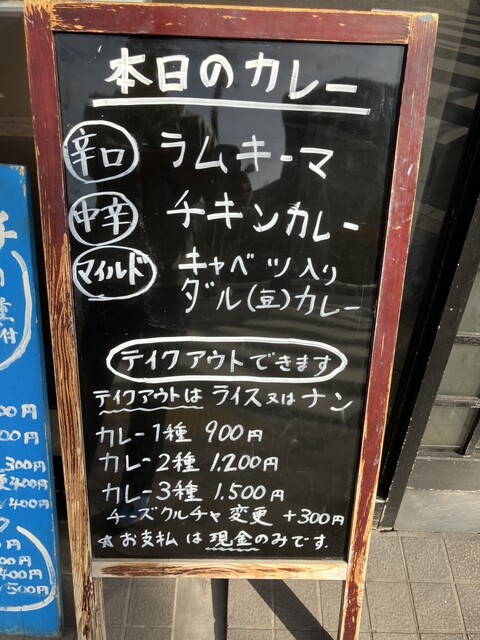 本日のカレー
辛口 ラムキーマ
中辛 チキンカレー
マイルド キャベツ入り
ダル(豆)カレー
テイクアウトできます
テイクアウトは ライス又はナン
カレー1種 900円
カレー2種 1.200円
カレー3種 1.500円
チーズクルチャ変更 +300円
☆お支払は現金のみです
付
00円
300円
400円
400円
400円
500円